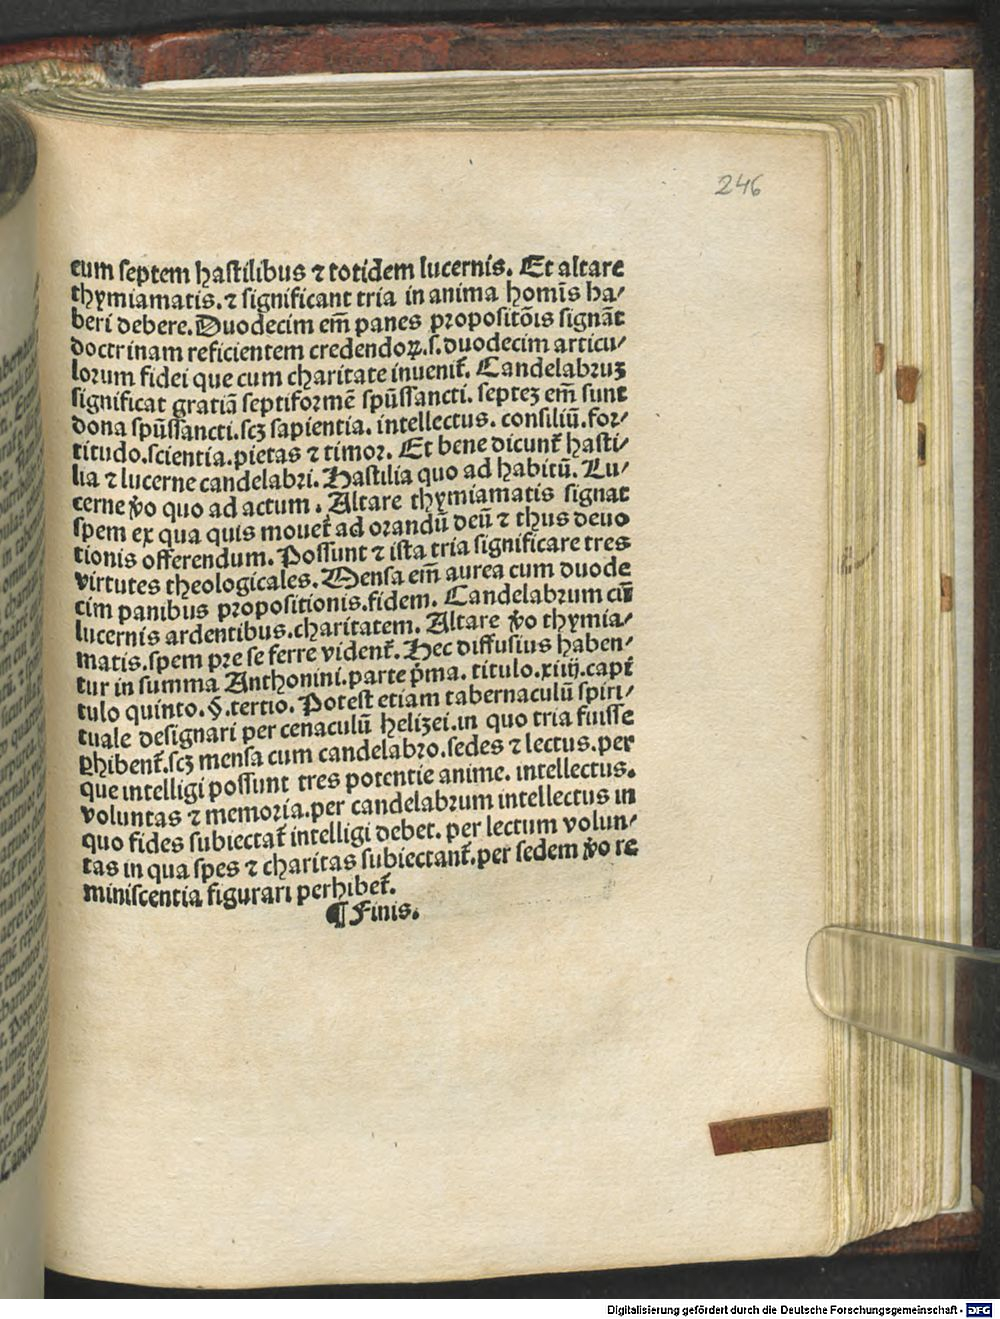 246
cum septem hastilibus ⁊ totidem lucernis. Et altare
thymiamatis. ⁊ significant tria in anima homīs ha⸗
beri debere. Duodecim em̄ panes propositōis signāt
doctrinam reficientem credendoꝝ .s. duodecim articu⸗
lorum fidei que cum charitate inuenit̄. Candelabruꝫ
significat gratiā septiformē spūssancti. septeꝫ em̄ sunt
dona spūssancti. scꝫ sapientia. intellectus. consiliū. for⸗
titudo. scientia. pietas ⁊ timor. Et bene dicunt̄ hasti⸗
lia ⁊ lucerne candelabri. Hastilia quo ad habitū. Lu⸗
cerne v̄o quo ad actum. Altare thymiamatis signat
spem ex qua quis mouet̄ ad orandū deū ⁊ thus deuo
tionis offerendum. Possunt ⁊ ista tria significare tres
virtutes theologicales. Mensa em̄ aurea cum duode
cim panibus propositionis. fidem. Candelabrum cū
lucernis ardentibus. charitatem. Altare v̄o thymia⸗
matis. spem pre se ferre vident̄. Hec diffusius haben⸗
tur in summa Anthonini. parte p̄ma. titulo. xiiij. capi
tulo quinto. §. tertio. Potest etiam tabernaculū spiri⸗
tuale designari per cenaculū helizei. in quo tria fuisse
ꝑhibent̄. scꝫ mensa cum candelabro. sedes ⁊ lectus. per
que intelligi possunt tres potentie anime. intellectus.
voluntas ⁊ memoria. per candelabrum intellectus in
quo fides subiectat̄ intelligi debet. per lectum volun⸗
tas in qua spes ⁊ charitas subiectant̄. per sedem v̄o re
miniscentia figurari perhibet̄.
¶ Finis.
Digitalisierung gefördert durch die Deutsche Forschungsgemeinschaft - DFG